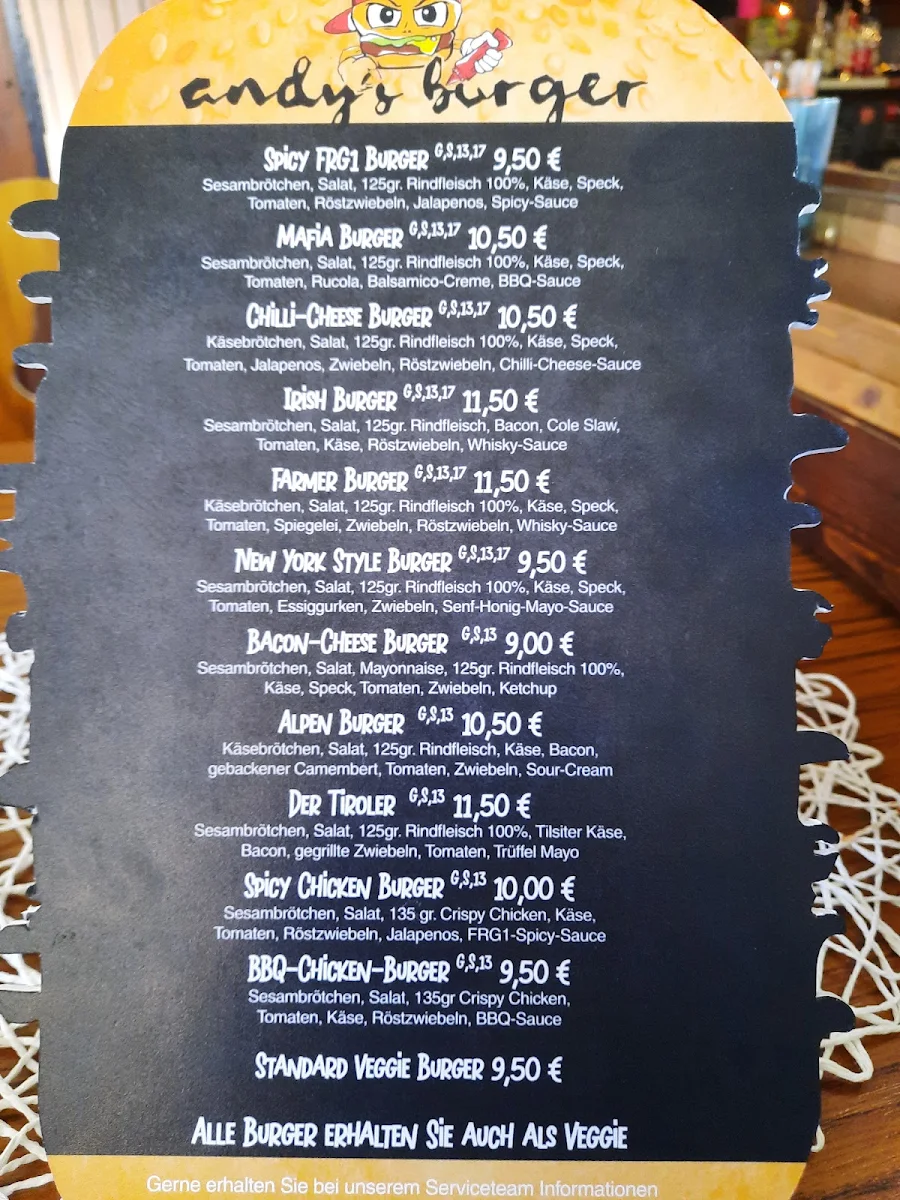 andy's burger
Spicy FRG1 Burger G,S,13,17 9,50 €
Sesambrötchen, Salat, 125gr. Rindfleisch 100%, Käse, Speck,
Tomaten, Röstzwiebeln, Jalapenos, Spicy-Sauce
Mafia Burger G,S,13,17 10,50 €
Sesambrötchen, Salat, 125gr. Rindfleisch 100%, Käse, Speck,
Tomaten, Rucola, Balsamico-Creme, BBQ-Sauce
Chilli-Cheese Burger G,S,13,17 10,50 €
Käsebrötchen, Salat, 125gr. Rindfleisch 100%, Käse, Speck,
Tomaten, Jalapenos, Zwiebeln, Röstzwiebeln, Chilli-Cheese-Sauce
Irish Burger G,S,13,17 11,50 €
Sesambrötchen, Salat, 125gr. Rindfleisch, Bacon, Cole Slaw,
Tomaten, Käse, Röstzwiebeln, Whisky-Sauce
Farmer Burger G,S,13,17 11,50 €
Käsebrötchen, Salat, 125gr. Rindfleisch 100%, Käse, Speck,
Tomaten, Spiegelei, Zwiebeln, Röstzwiebeln, Whisky-Sauce
New York Style Burger G,S,13,17 9,50 €
Sesambrötchen, Salat, 125gr. Rindfleisch 100%, Käse, Speck,
Tomaten, Essiggurken, Zwiebeln, Senf-Honig-Mayo-Sauce
Bacon-Cheese Burger G,S,13 9,00 €
Sesambrötchen, Salat, Mayonnaise, 125gr. Rindfleisch 100%,
Käse, Speck, Tomaten, Zwiebeln, Ketchup
Alpen Burger G,S,13 10,50 €
Käsebrötchen, Salat, 125gr. Rindfleisch, Käse, Bacon,
gebackener Camembert, Tomaten, Zwiebeln, Sour-Cream
Der Tiroler G,S,13 11,50 €
Sesambrötchen, Salat, 125gr. Rindfleisch 100%, Tilsiter Käse,
Bacon, gegrillte Zwiebeln, Tomaten, Trüffel Mayo
Spicy Chicken Burger G,S,13 10,00 €
Sesambrötchen, Salat, 135 gr. Crispy Chicken, Käse,
Tomaten, Röstzwiebeln, Jalapenos, FRG1-Spicy-Sauce
BBQ-Chicken-Burger G,S,13 9,50 €
Sesambrötchen, Salat, 135gr Crispy Chicken,
Tomaten, Käse, Röstzwiebeln, BBQ-Sauce
Standard Veggie Burger 9,50 €
Alle Burger erhalten Sie auch als Veggie
Gerne erhalten Sie bei unserem Serviceteam Informationen